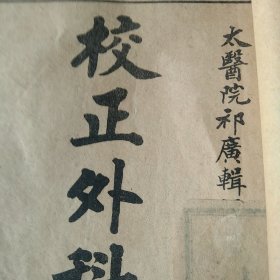 太醫院祁廣輯
校正外科